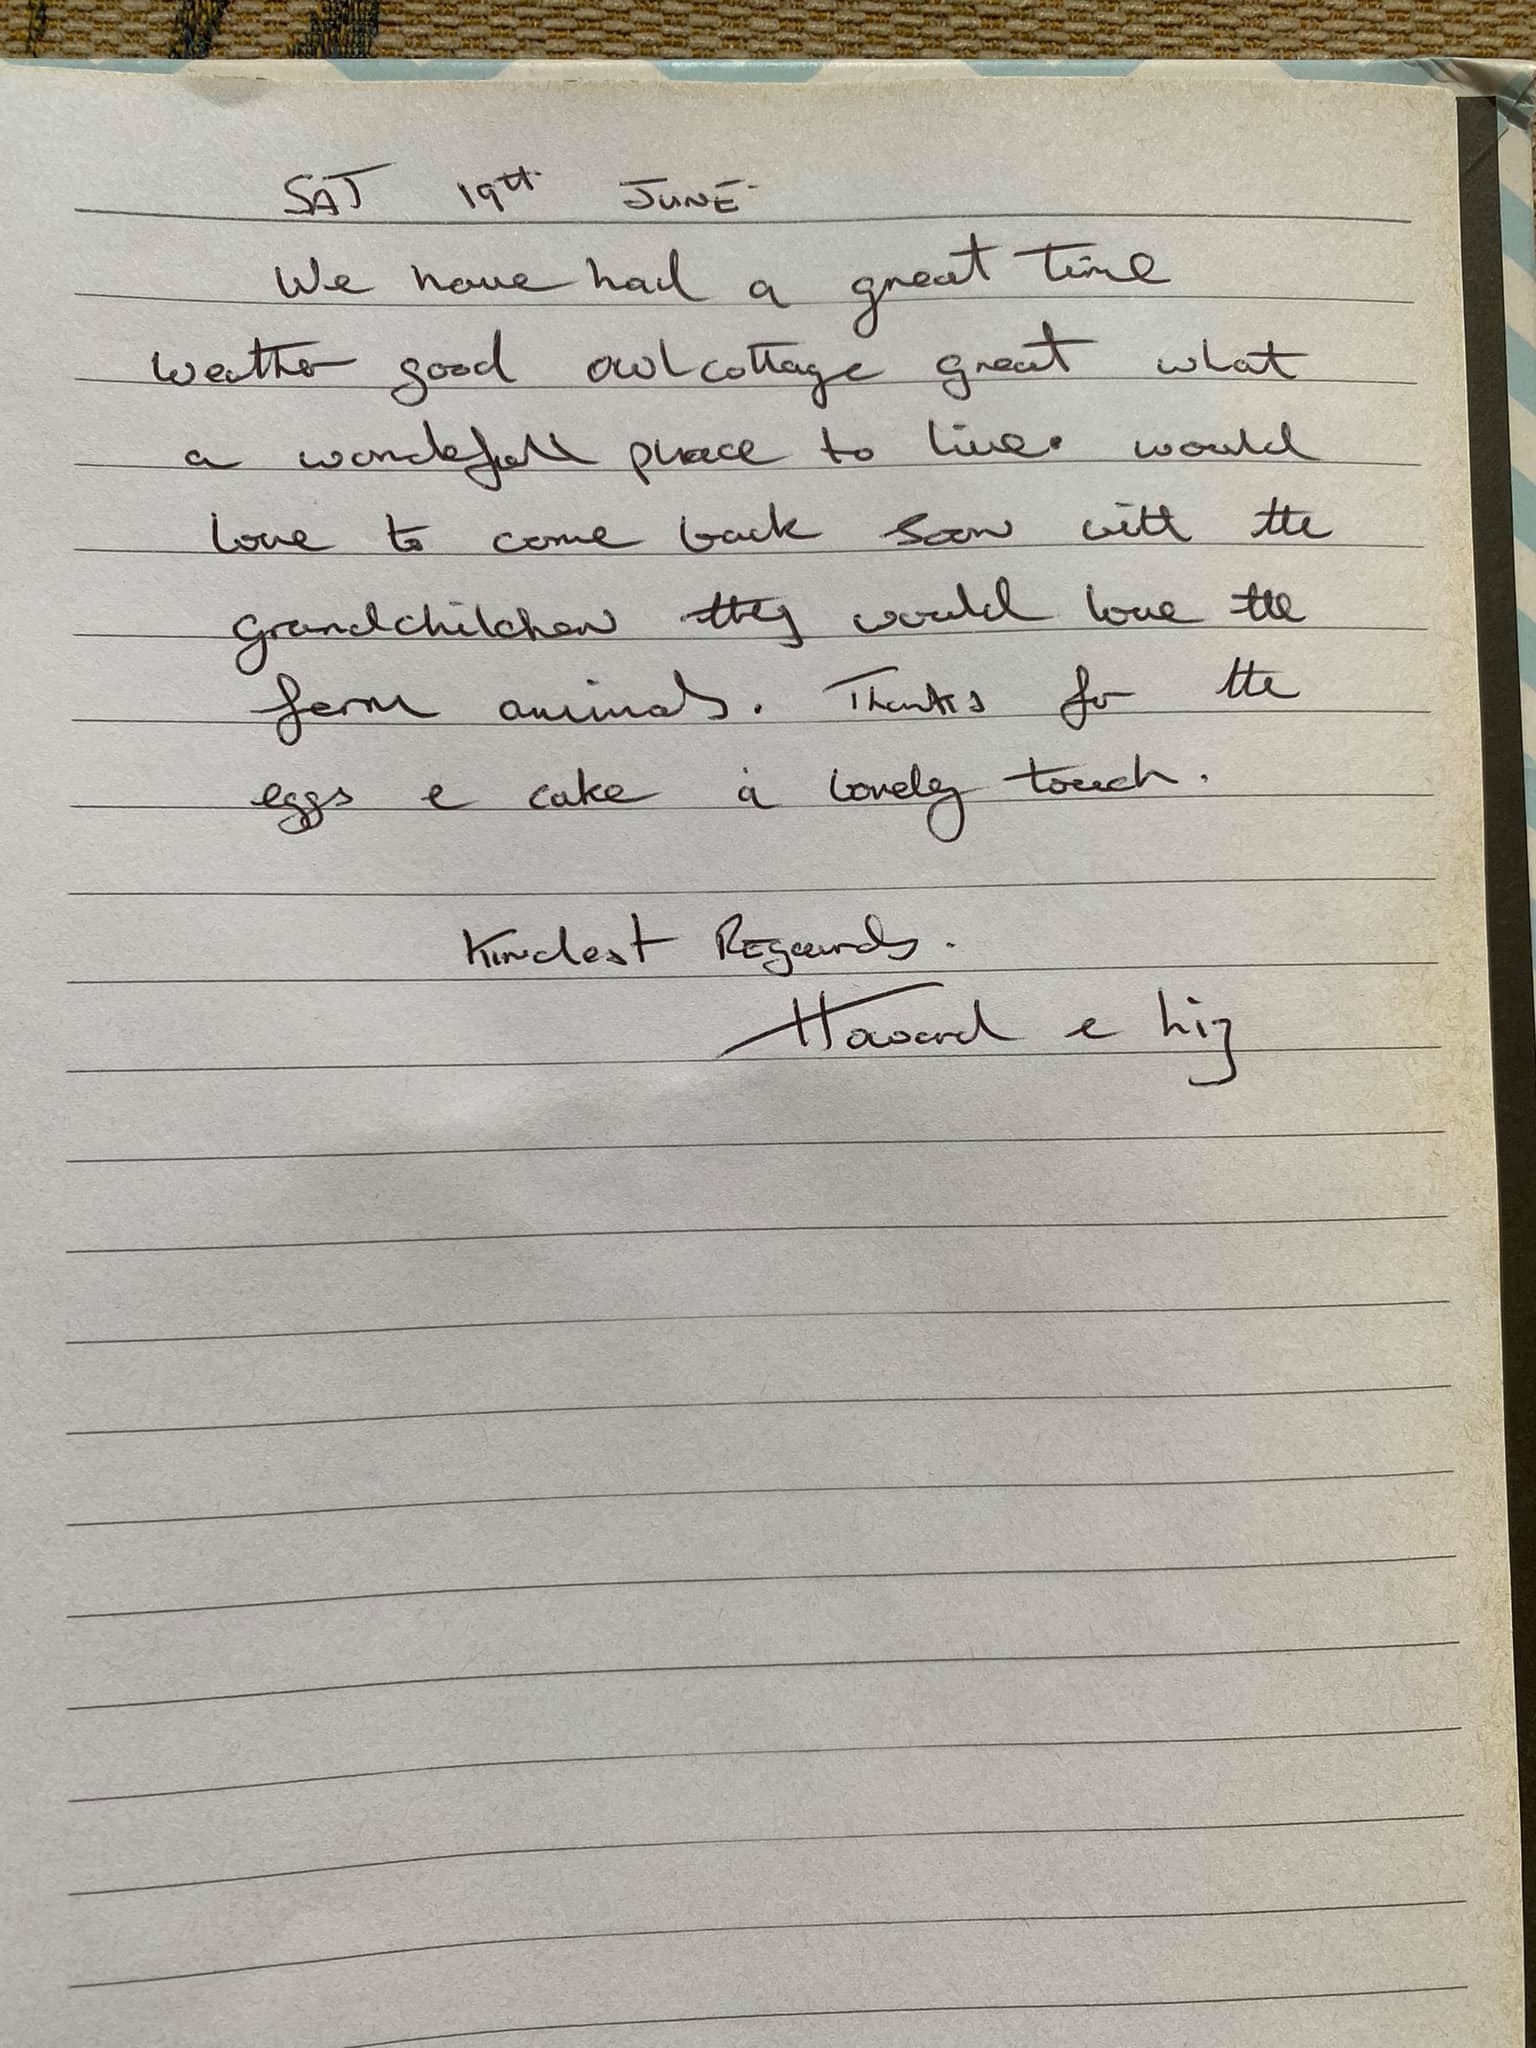 SAT 19th JUNE.
We have had a great time
weather good owl cottage great what
a wonderfull place to live. would
love to come back soon with the
grandchildren they would love the
farm animals. Thanks for the
eggs & cake a lovely touch.
Kindest Regards.
Howard & Liz